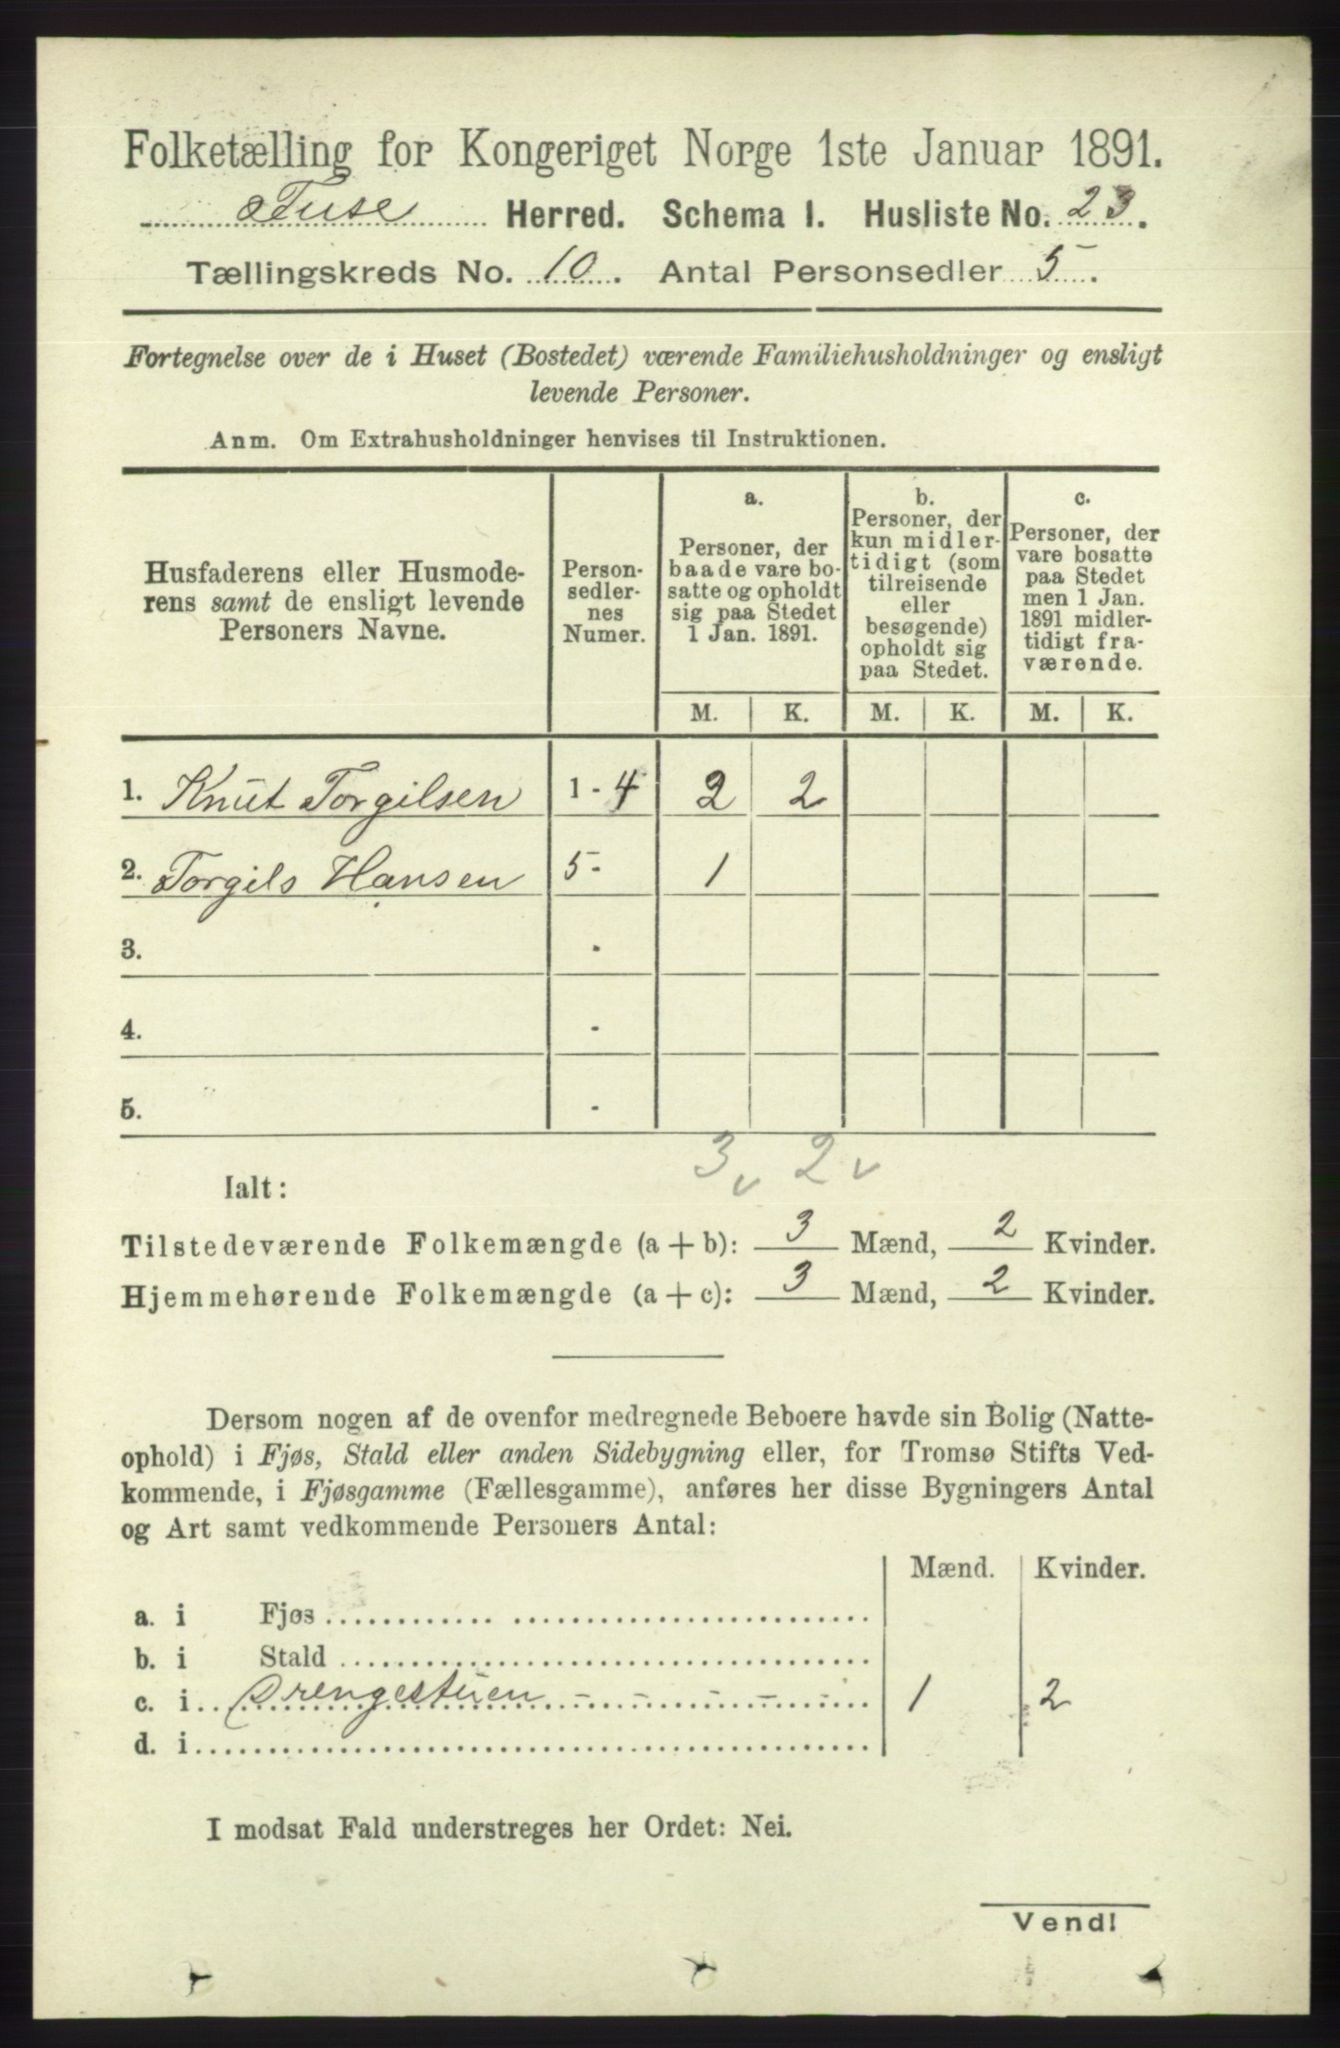 Folketælling for Kongeriget Norge 1ste Januar 1891.
Fuse Herred. Schema I. Husliste No. 23.
Tællingskreds No. 10. Antal Personsedler 5.
Fortegnelse over de i Huset (Bostedet) værende Familiehusholdninger og ensligt
levende Personer.
Anm. Om Extrahusholdninger henvises til Instruktionen.
Husfaderens eller Husmode-
rens samt de ensligt levende
Personers Navne.
Person-
sedler-
nes
Numer.
a.
Personer, der
baade vare bo-
satte og opholdt
sig paa Stedet
1 Jan. 1891.
b.
Personer, der
kun midler-
tidigt (som
tilreisende
eller
besøgende)
opholdt sig
paa Stedet.
c.
Personer, der
vare bosatte
paa Stedet
men 1 Jan.
1891 midler-
tidigt fra-
værende.
M. K. M. K. M. K.
1. Knut Torgilsen 1 - 4 2 2
2. Torgils Hansen 5 - 1
3. -
4. -
5. -
3 v 2 v
Ialt:
Tilstedeværende Folkemængde (a + b): 3 Mænd, 2 Kvinder.
Hjemmehørende Folkemængde (a + c): 3 Mænd, 2 Kvinder.
Dersom nogen af de ovenfor medregnede Beboere havde sin Bolig (Natte-
ophold) i Fjøs, Stald eller anden Sidebygning eller, for Tromsø Stifts Ved-
kommende, i Fjøsgamme (Fællesgamme), anføres her disse Bygningers Antal
og Art samt vedkommende Personers Antal:
Mænd. Kvinder.
a. i Fjøs
b. i Stald
c. i Drengestuen 1 2
d. i
I modsat Fald understreges her Ordet: Nei.
Vend!